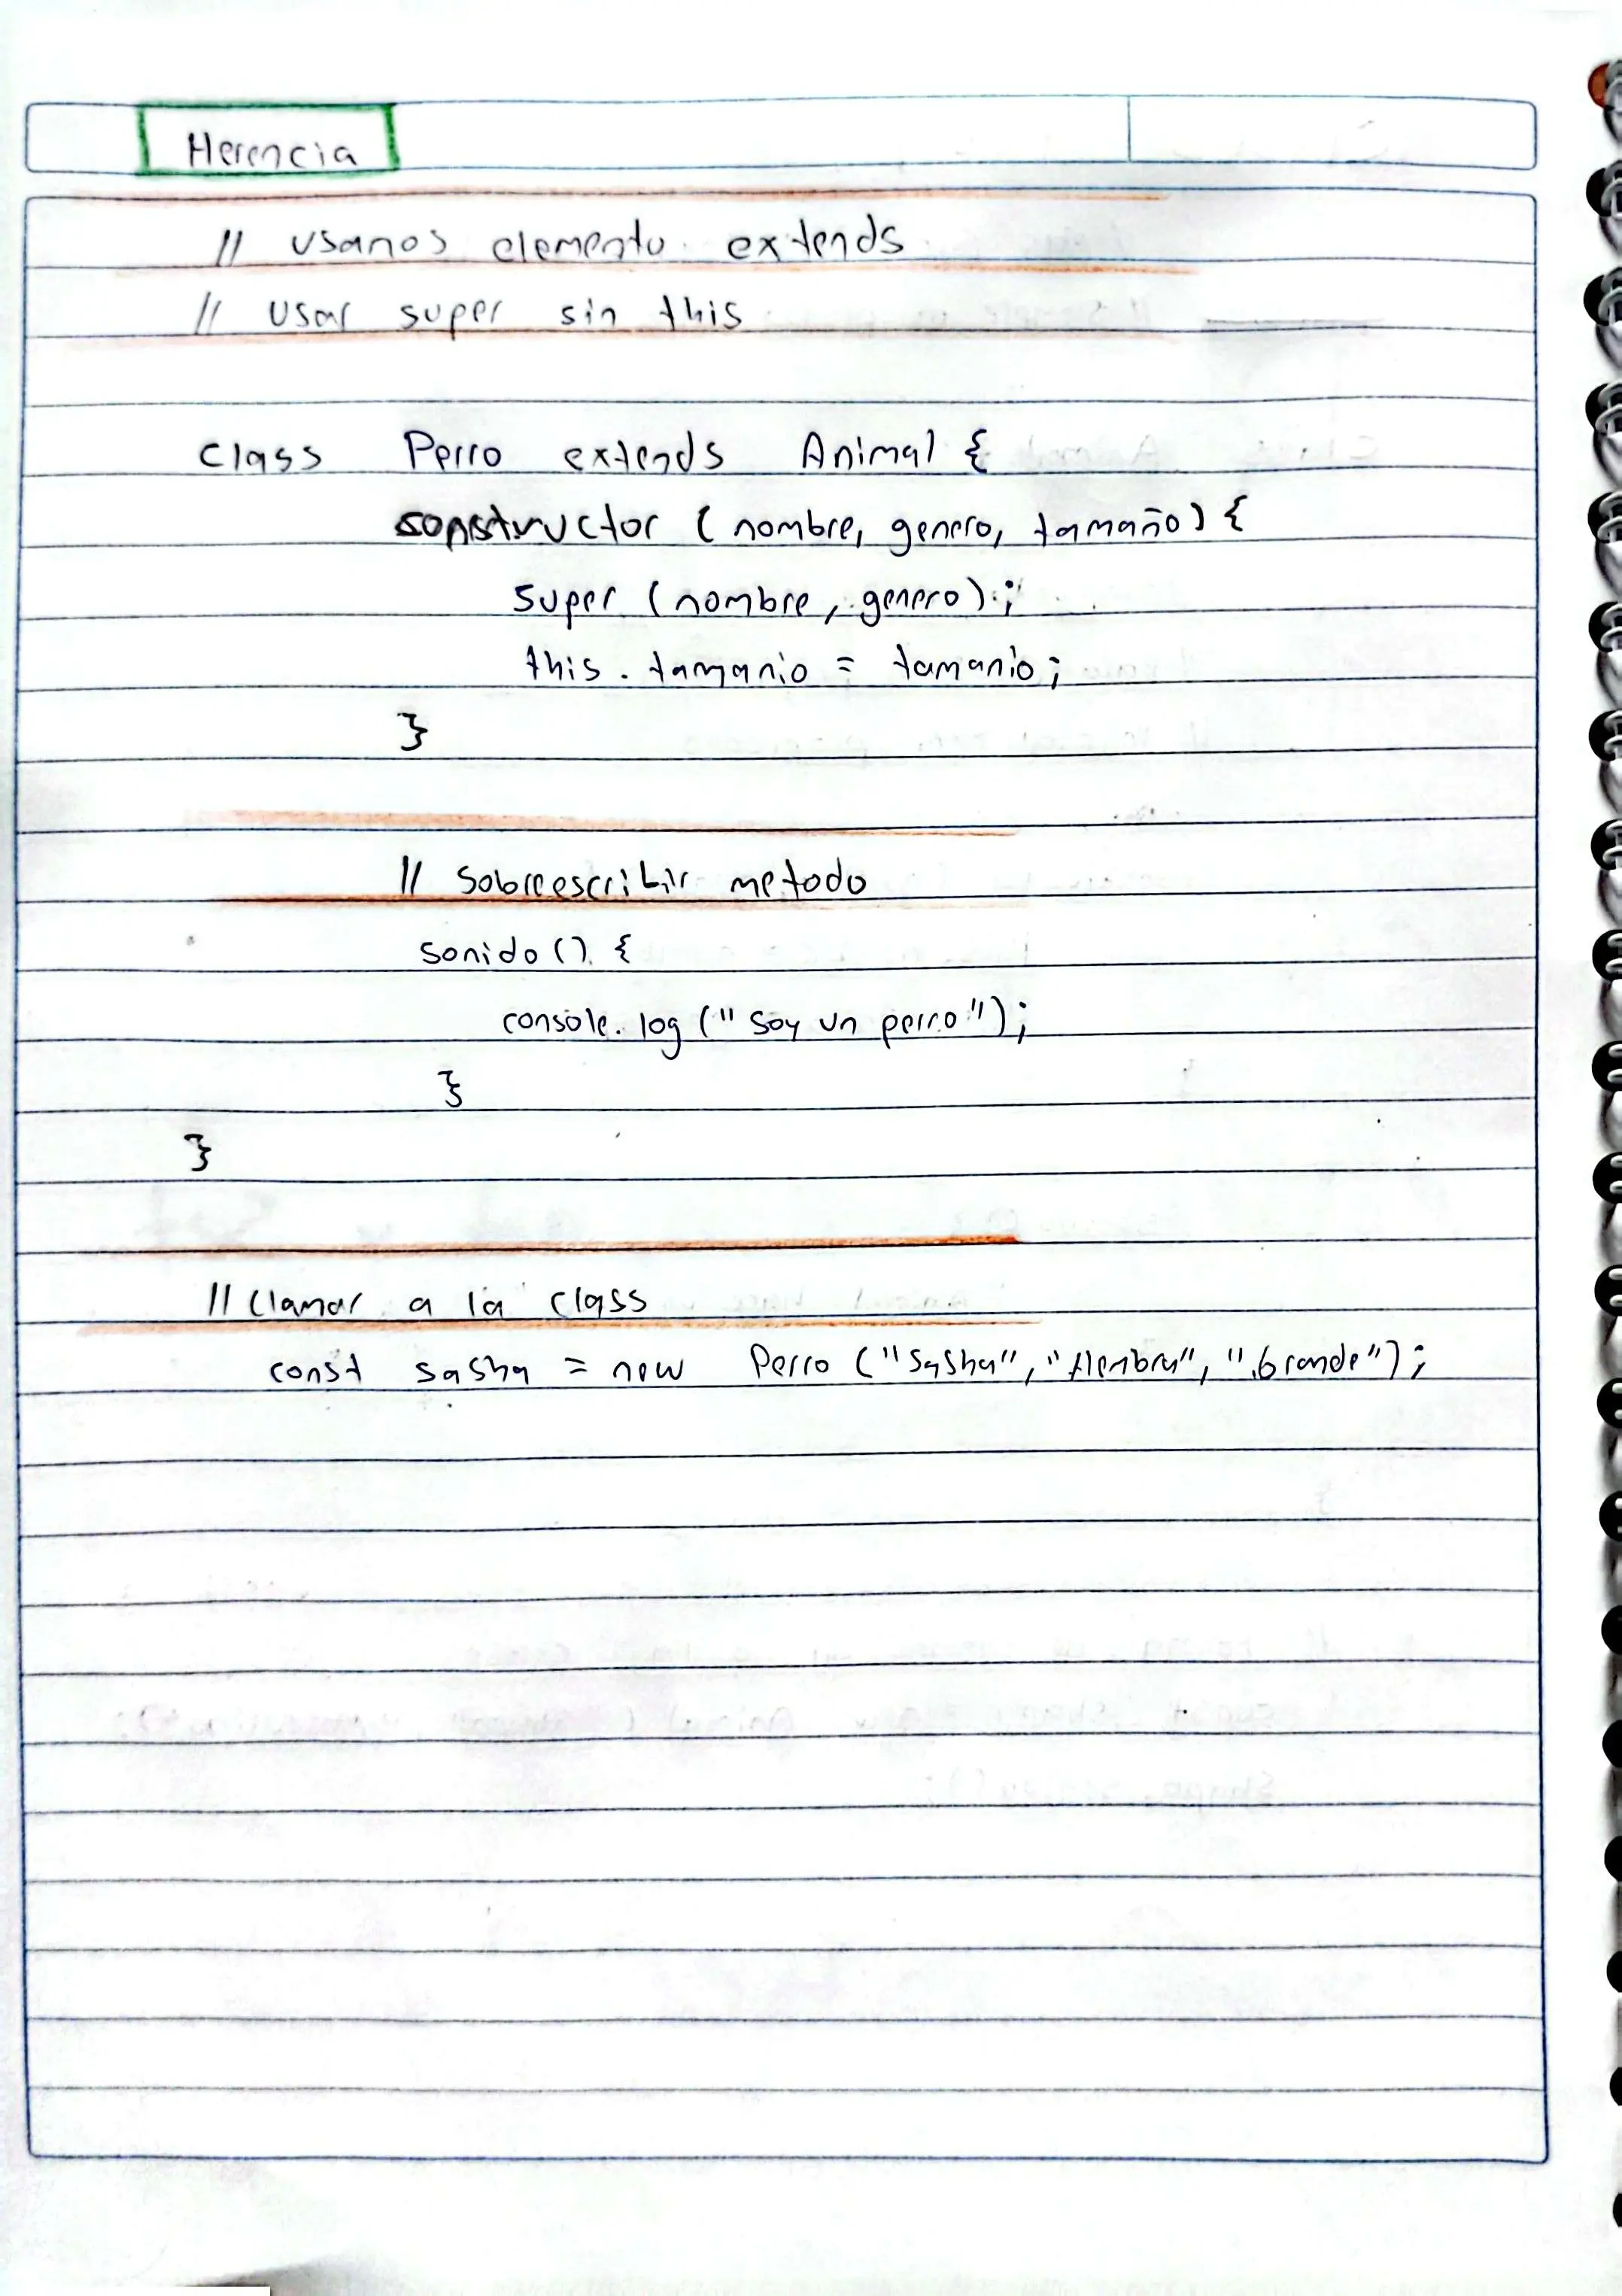 Herencia
// usanos elemento extends
// usar super sin this
class Perro extends Animal {
constructor (nombre, genero, tamaño) {
super (nombre, genero);
this.tamanio = tamanio;
}
// Sobreescribir metodo
sonido () {
console.log ("Soy un perro");
}
}
// Clamar a la class
const sasha = new Perro ("Sasha", "Hembra", "Grande");